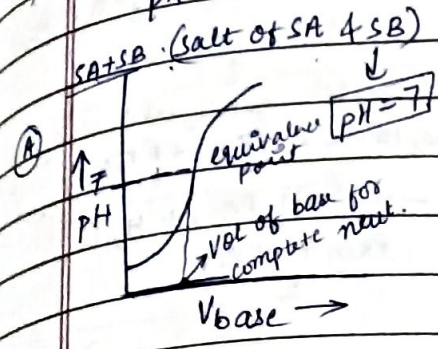 SA+SB. (salt of SA & SB)
pH = 7
A
equivalence point
↑ 7
pH
vol of base for
complete neut.
Vbase →